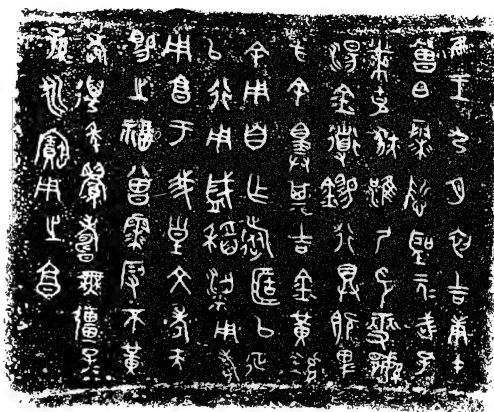 隹王九月初吉庚午
曾白霥悊聖元武孔
黹克狄淮尸印燮鄬
湯金道錫行具既卑
方余擇其吉金黃鑪
余用自乍旅匿以征
以行用盛稻粱用孝
用享于我皇文考天
賜之福曾霥叚不黃
耇萬年眉壽無疆子
孫永寶用之享